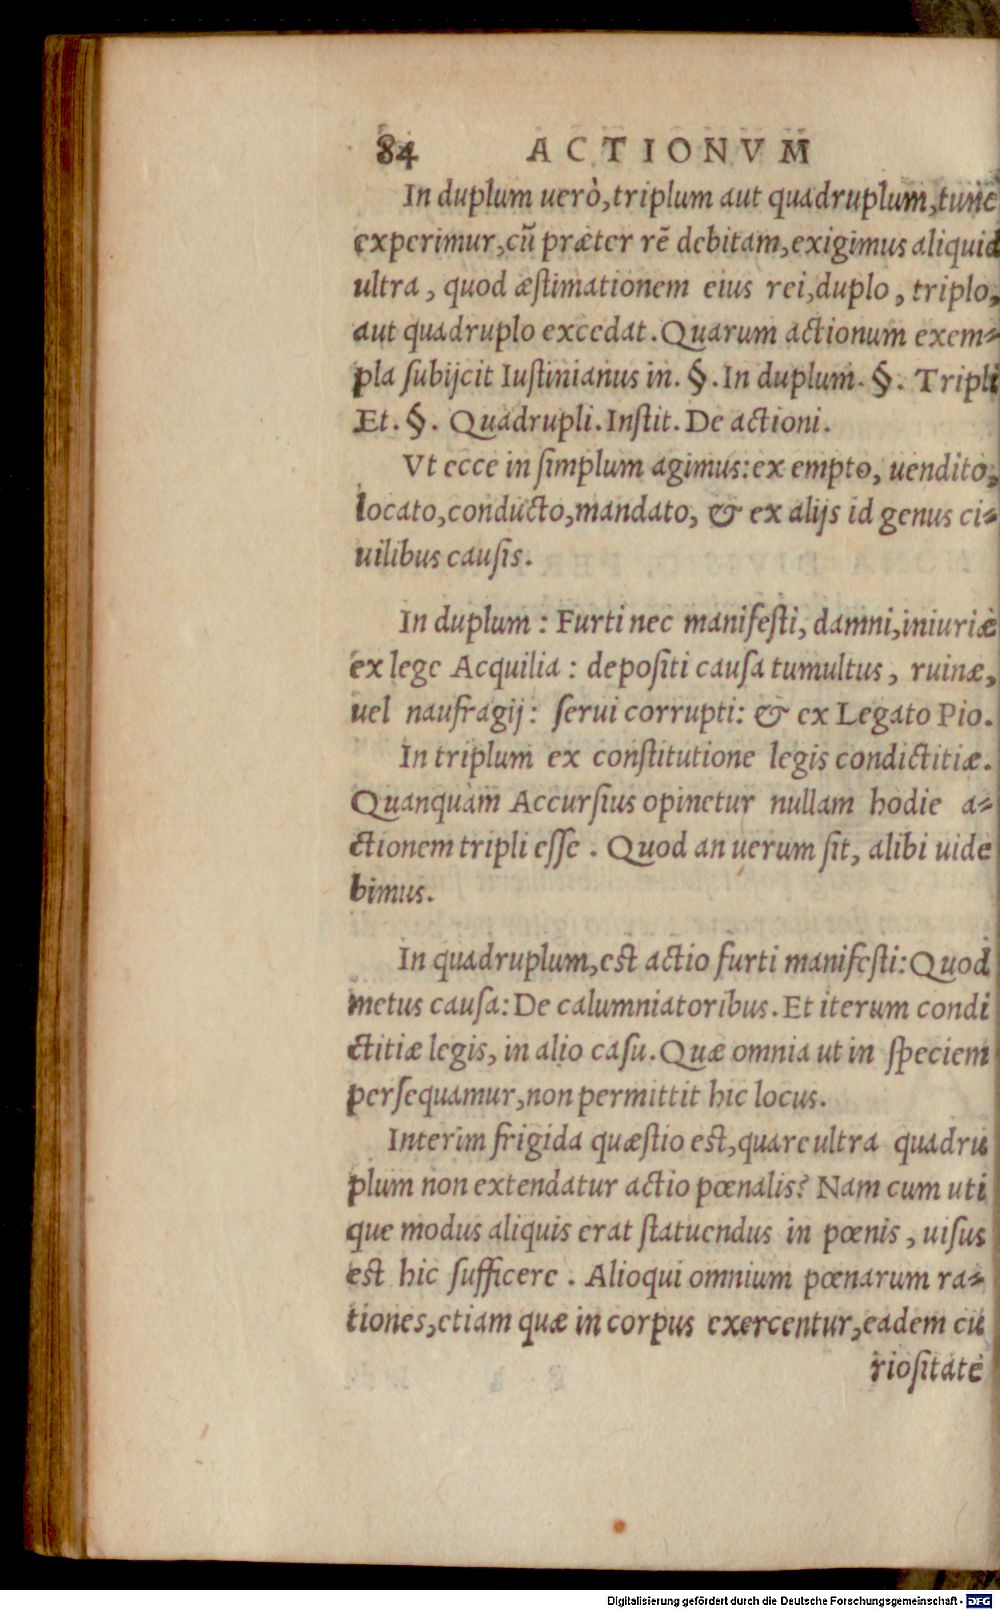 84 ACTIONVM
In duplum uerò, triplum aut quadruplum, tunc
experimur, cũ præter rẽ debitam, exigimus aliquid
ultra, quod æstimationem eius rei, duplo, triplo,
aut quadruplo excedat. Quarum actionum exem-
pla subijcit Iustinianus in. §. In duplum. §. Tripli
Et. §. Quadrupli. Instit. De actioni.
Vt ecce in simplum agimus: ex empto, uendito,
locato, conducto, mandato, & ex alijs id genus ci-
uilibus causis.
In duplum: Furti nec manifesti, damni, iniuriæ
ex lege Acquilia: depositi causa tumultus, ruinæ,
uel naufragij: serui corrupti: & ex Legato Pio.
In triplum ex constitutione legis condictitiæ.
Quanquàm Accursius opinetur nullam hodie a-
ctionem tripli esse. Quod an uerum sit, alibi uide
bimus.
In quadruplum, est actio furti manifesti: Quod
metus causa: De calumniatoribus. Et iterum condi
ctitiæ legis, in alio casu. Quæ omnia ut in speciem
persequamur, non permittit hic locus.
Interim frigida quæstio est, quare ultra quadru
plum non extendatur actio pœnalis? Nam cum uti
que modus aliquis erat statuendus in pœnis, uisus
est hic sufficere. Alioqui omnium pœnarum ra-
tiones, etiam quæ in corpus exercentur, eadem cu
riositate
Digitalisierung gefördert durch die Deutsche Forschungsgemeinschaft - DFG